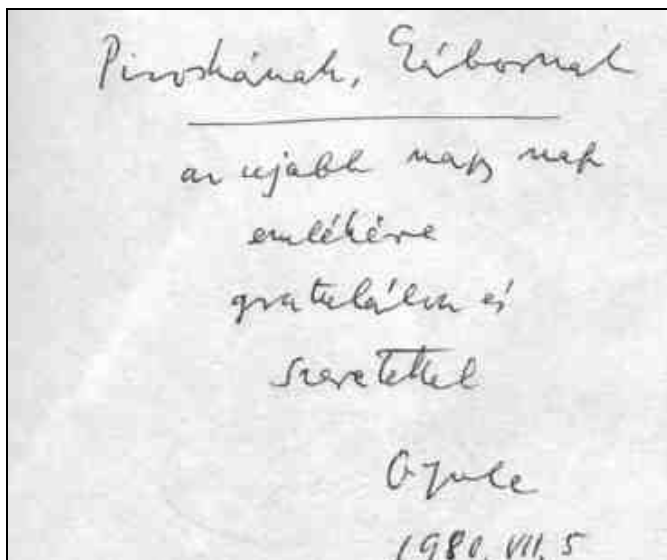 Piroskának, Gábornak
az ujabb nagy nap
emlékére
gratulálva és
szeretettel
Gyula
1980. VII. 5